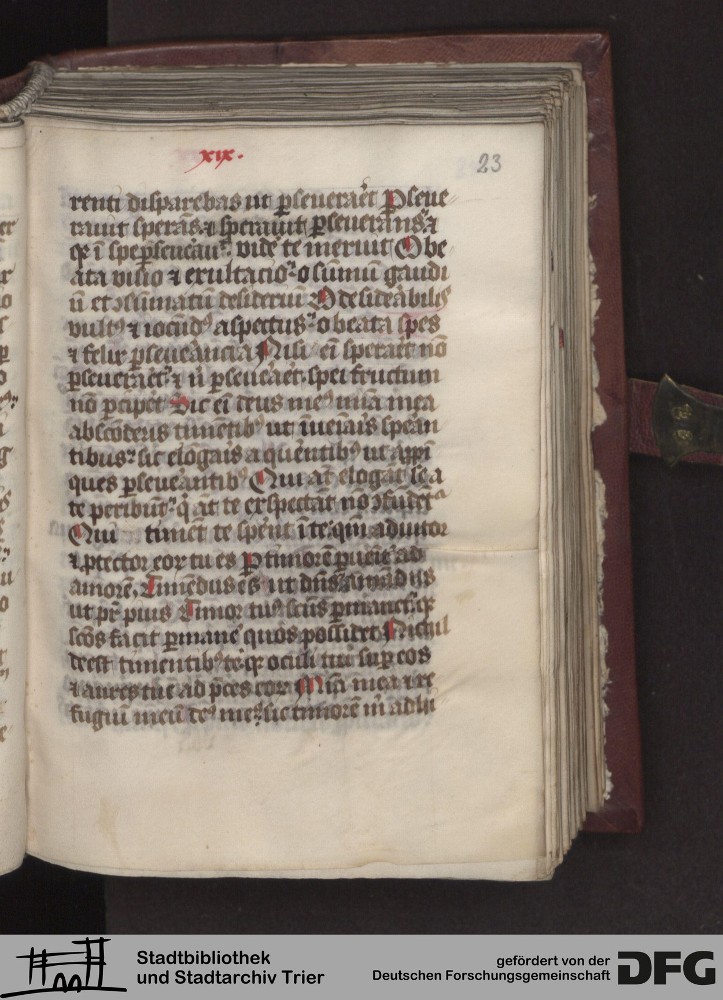 xix.
23
renti disparebas ut ꝑseueraret Pseue
rauit sperās ⁊ sperauit ꝑseuerans ⁊
qꝛ ī spe ꝑseuerauit vide te meruit O be
ata visio ⁊ exultacio o sūmū gaudi
ū et ɔsūmatū desideriū O desiderabilis
vultꝰ ⁊ iocūdꝰ aspectus o beata spes
⁊ felix ꝑseuerancia Nisi eī speraret nō
ꝑseueraret ⁊ ñ ꝑseueraret spei fructum
nō ꝑcipet Dic eī deus meꝰ mīa mea
absconderis timentibꝰ ut inueniaris speran
tibus sic elōgaris a querentibꝰ ut appī
ques ꝑseuerantibꝰ Qui at elōgāt se a
te peribūt q̇ āt te exspectāt nō ɔfūdētᵉ
Qui timēt te sperēt ī te qui adiutor
⁊ ꝓtector eoꝝ tu es P timorē ꝑueīt ad
amorē Timēdus es ut dūs amādus
ut pr̄ pius Timor tuꝰ scūs ꝑmanet qꝛ
scōs facit ꝑmane quos possidet Nichil
deest timentibꝰ te qꝛ oculi tui suꝑ eos
⁊ aures tue ad p̄ces eoꝝ Mīa mea ⁊ re
fugiū meū deꝰ meꝰ sic timorē
Stadtbibliothek
und Stadtarchiv Trier
gefördert von der
Deutschen Forschungsgemeinschaft
DFG